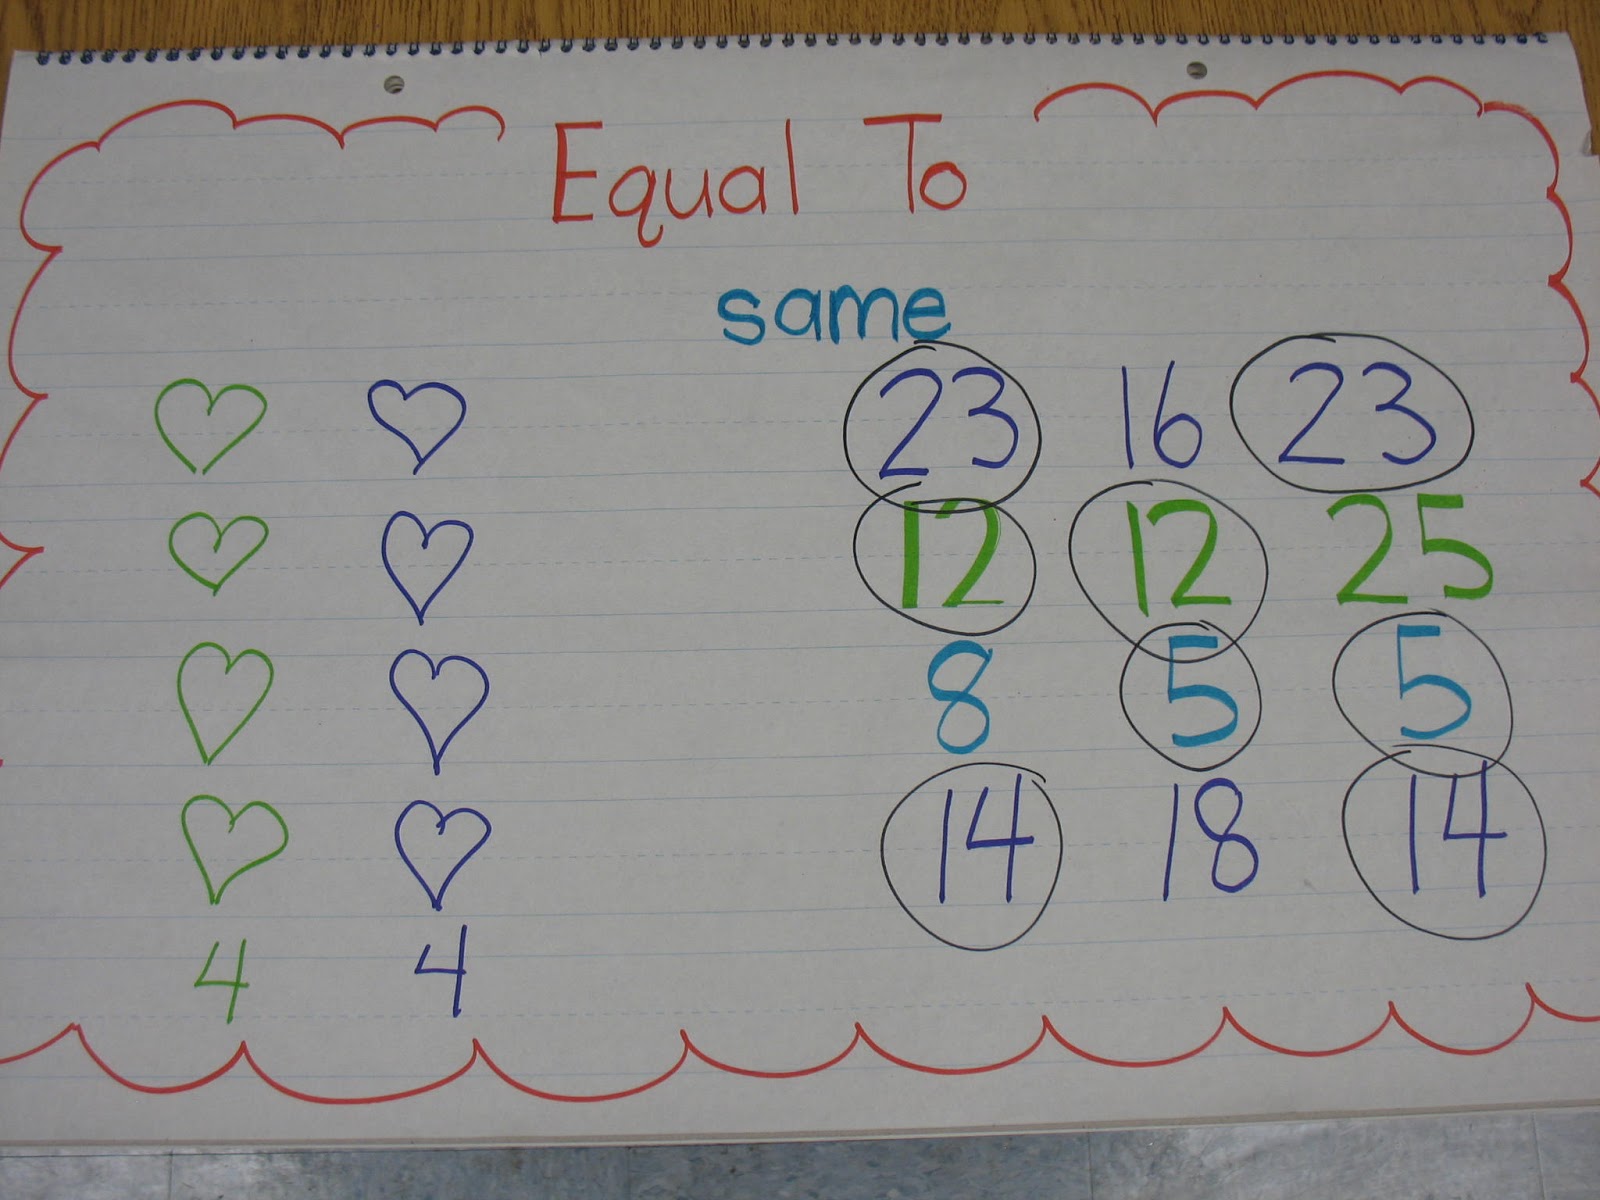 Equal To
same
23 16 23
12 12 25
8 5 5
14 18 14
4 4